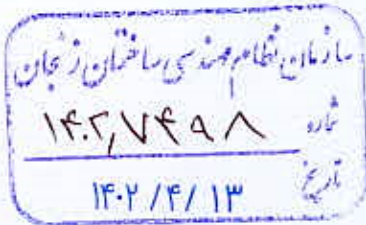 سازمان نظام مهندسی ساختمان زنجان
شماره ۱۴۰۲,۷۴۹۸
تاریخ ۱۴۰۲/۴/۱۳